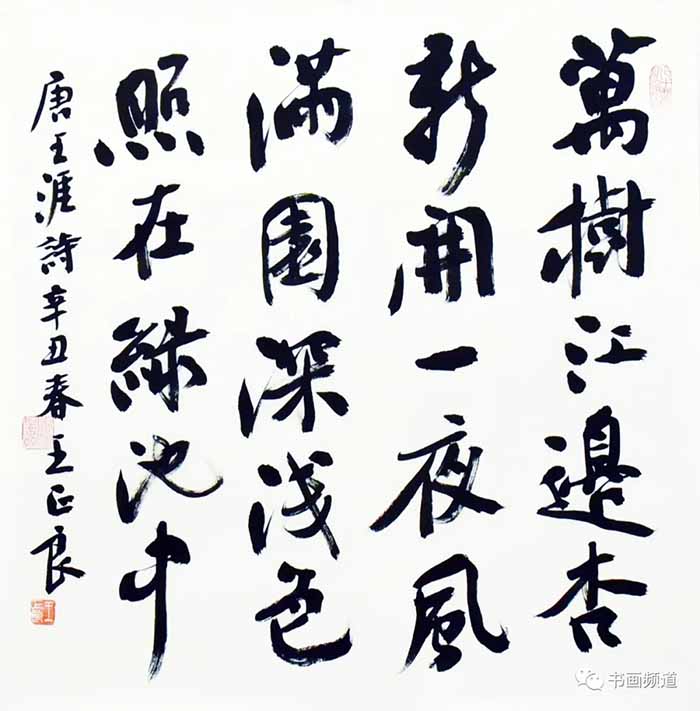 萬樹江邊杏
新開一夜風
滿園深浅色
照在綠池中
唐王涯詩辛丑春王正良
书画频道